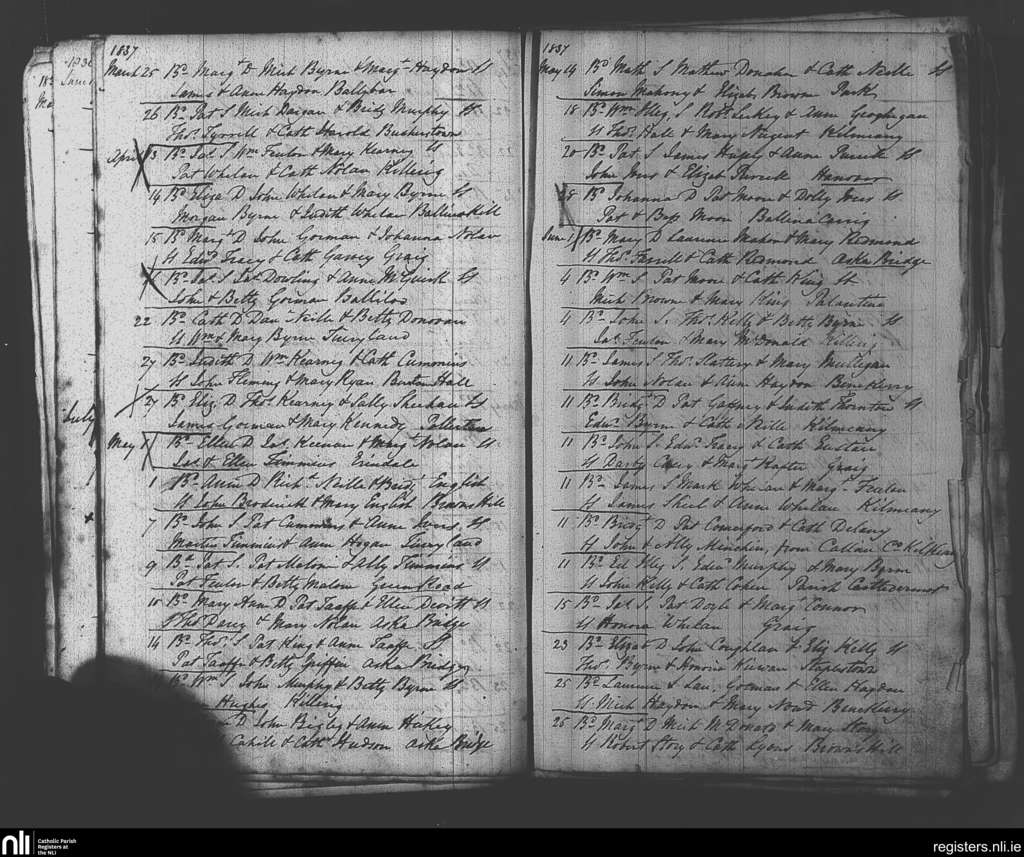 1837
March 25 Bd Margt D Mich Byrne & Margt Haydon SS
James & Ann Haydon Ballybar
26 Bd Pat S Mich Dargan & Bridg Murphy SS
Thos Tyrrell & Cath Harold Busherstown
April 3 Bd Jas S Wm Fenlon & Mary Kearney SS
Pat Whelan & Cath Nolan Killing
14 Bd Eliza D John Whelan & Mary Byrne SS
Morgan Byrne & Judith Whelan Ballinakill
15 Bd Margt D John Gorman & Johanna Nolan
SS Edwd Tracy & Cath Garvey Graig
Bd Jas S Jas Dowling & Anne McGuirk SS
John & Betty Gorman Balliloo
22 Bd Cath D Danl Neille & Betty Donovan
SS Wm & Mary Byrne Tinryland
27 Bd Judith D Wm Kearney & Cath Cummins
SS John Fleming & Mary Ryan Burton Hall
27 Bd Eliz D Thos Kearney & Sally Sheehan SS
James Gorman & Mary Kennedy Pollerton
May 1 Bd Ellen D Jas Keenan & Margt Nolan SS
Jas & Ellen Timmins Erindale
1 Bd Ann D Richd Neille & Bridgt English
SS John Broderick & Mary English Browns Hill
7 Bd John S Pat Cummins & Anne SS
Martin Timmins & Ann Hogan Tinryland
9 Bd Pat S Pat Malone & Ally Timmins SS
Pat Fenlon & Betty Malone Green Road
10 Bd Mary Ann D Pat Taaffe & Ellen Dewitt SS
Thos Darcy & Mary Nolan Aska Bridge
14 Bd Thos S Pat King & Anne Taaffe Ss
Pat Taaffe & Betty Griffin Aska Bridge
Bd Wm S John Murphy & Betty Byrne SS
Hughes Killing
D John Bigley & Ann Hickey
Cahill & Cath Hudson Aska Bridge
1837
May 14 Bd Math S Mathew Donahoe & Cath Neille SS
Simon Mahony & Elizab Browne Park
18 Bd Wm Illeg S Robt Leckey & Ann Geoghegan
SS Thos Hall & Mary Nugent Kilmeany
20 Bd Pat S James & Anne SS
John & Elizab Hanover
28 Bd Johanna D Pat Moore & Dolly SS
Pat & Bess Moore Ballinacarrig
June 1 Bd Mary D Laurence Mahon & Mary Redmond
SS Thos Farrell & Cath Redmond Aska Bridge
4 Bd Wm S Pat Moore & Cath King SS
Mich Browne & Mary King Palatine
4 Bd John S Thos Kelly & Betty Byrne SS
Jas Fenlon & Mary McDonald Killing
11 Bd James S Thos Slattery & Mary Mulligan
SS John Nolan & Ann Haydon Benekerry
11 Bd Bridgt D Pat Gaffney & Judith Thornton SS
Edwd Byrne & Cath Neille Kilmeany
11 Bd John S Edwd Tracy & Cath Eustace
SS Darby Casey & Margt Rafter Graig
11 Bd James S Mark Whelan & Margt Fenlon
SS James Shiel & Anne Whelan Kilmeany
11 Bd Bridgt D Pat Comerford & Cath Delany
SS John & Ally Minchin, from Callan Co Kilkenny
11 Bd Ed Illeg S Edwd Murphy & Mary Byrne
SS John Kelly & Cath Cohen Parish Castledermot
15 Bd Jas S Pat Doyle & Margt Connor
SS Honora Whelan Graig
23 Bd Elizab D John Coughlan & Eliz Kelly SS
Thos Byrne & Honora Kirwan Staplestown
25 Bd Laurence S Lau. Gorman & Ellen Haydon
SS Mich Haydon & Mary Benekerry
25 Bd Margt D Mich McDonald & Mary Story
SS Robert Story & Cath Lyons Browns Hill
nli
Catholic Parish
Registers at
the NLI
registers.nli.ie